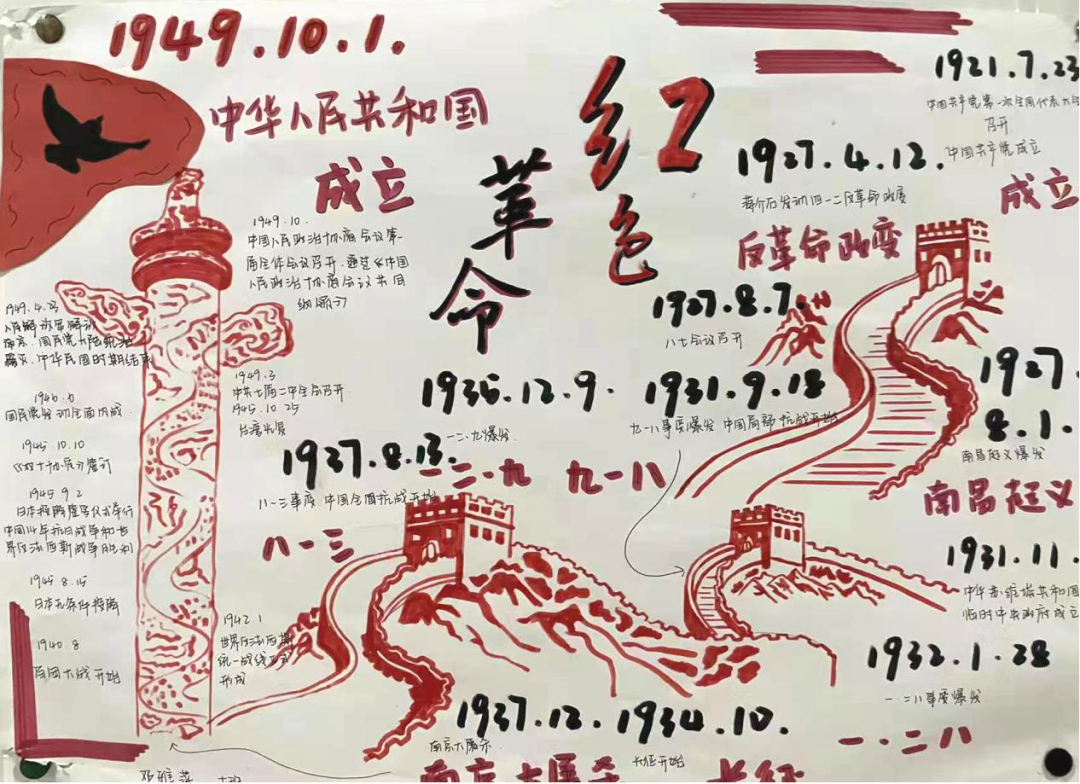 1949.10.1.
中华人民共和国
成立
红色
革命
1921.7.23
中国共产党第一次全国代表大会
召开
中国共产党成立
成立
1927.4.12.
蒋介石发动四一二反革命政变
反革命政变
1927.8.7.
八七会议召开
1927.
8.1.
南昌起义爆发
南昌起义
1931.9.18
九一八事变爆发 中国局部抗战开始
九一八
1931.11.
中华苏维埃共和国
临时中央政府成立
1932.1.28
一.二八事变爆发
一.二八
1934.10.
长征开始
长征
1935.12.9.
一二.九爆发
一二.九
1937.8.13.
八一三事变 中国全面抗战开始
八一三
1937.12.
南京大屠杀
南京大屠杀
1940.8
百团大战开始
1942.1
世界反法西斯
统一战线正式
形成
1945.8.15
日本无条件投降
1945.9.2
日本投降签字仪式举行
中国14年抗日战争和世
界反法西斯战争胜利
1945.10.10
双十协定签订
1945.10.25
台湾光复
1946.6
国民党发动全面内战
1949.3
中共七届二中全会召开
1949.4.23
人民解放军解放
南京,国民党
中华民国时期结束
1949.10.
中国人民政治协商会议第一
届全体会议召开,通过《中国
人民政治协商会议共同
纲领》